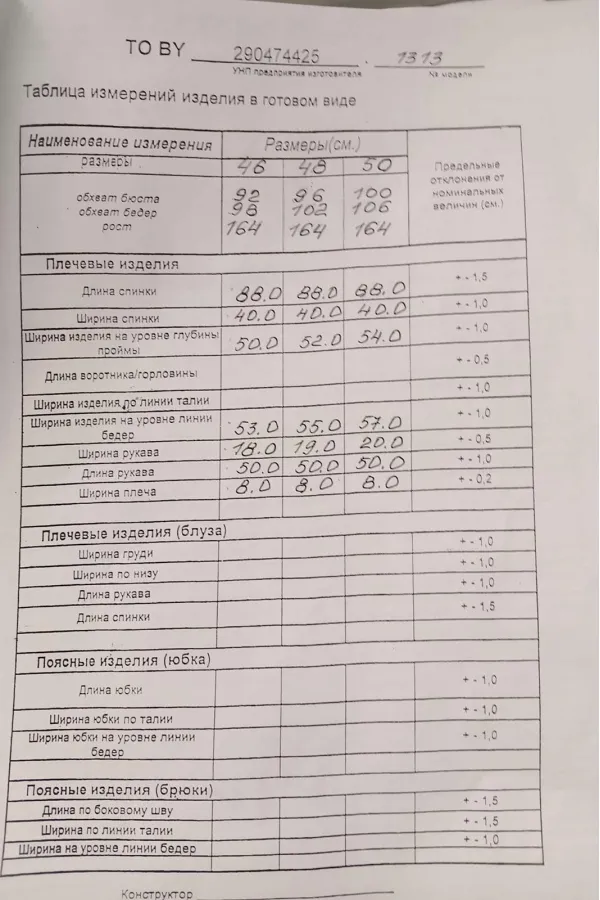 ТО BY 290474425 . 1313
УНП предприятия изготовителя № модели
Таблица измерений изделия в готовом виде
Наименование измерения Размеры(см.) Предельные отклонения от номинальных величин (см.)
размеры 46 48 50
обхват бюста 92 96 100
обхват бедер 98 102 106
рост 164 164 164
Плечевые изделия
Длина спинки 88.0 88.0 88.0 + - 1,5
Ширина спинки 40.0 40.0 40.0 + - 1,0
Ширина изделия на уровне глубины проймы 50.0 52.0 54.0 + - 1,0
Длина воротника/горловины + - 0,5
Ширина изделия по линии талии + - 1,0
Ширина изделия на уровне линии бедер 53.0 55.0 57.0 + - 1,0
Ширина рукава 18.0 19.0 20.0 + - 0,5
Длина рукава 50.0 50.0 50.0 + - 1,0
Ширина плеча 8.0 8.0 8.0 + - 0,2
Плечевые изделия (блуза)
Ширина груди + - 1,0
Ширина по низу + - 1,0
Длина рукава + - 1,0
Длина спинки + - 1,5
Поясные изделия (юбка)
Длина юбки + - 1,0
Ширина юбки по талии + - 1,0
Ширина юбки на уровне линии бедер + - 1,0
Поясные изделия (брюки)
Длина по боковому шву + - 1,5
Ширина по линии талии + - 1,5
Ширина на уровне линии бедер + - 1,0
Конструктор